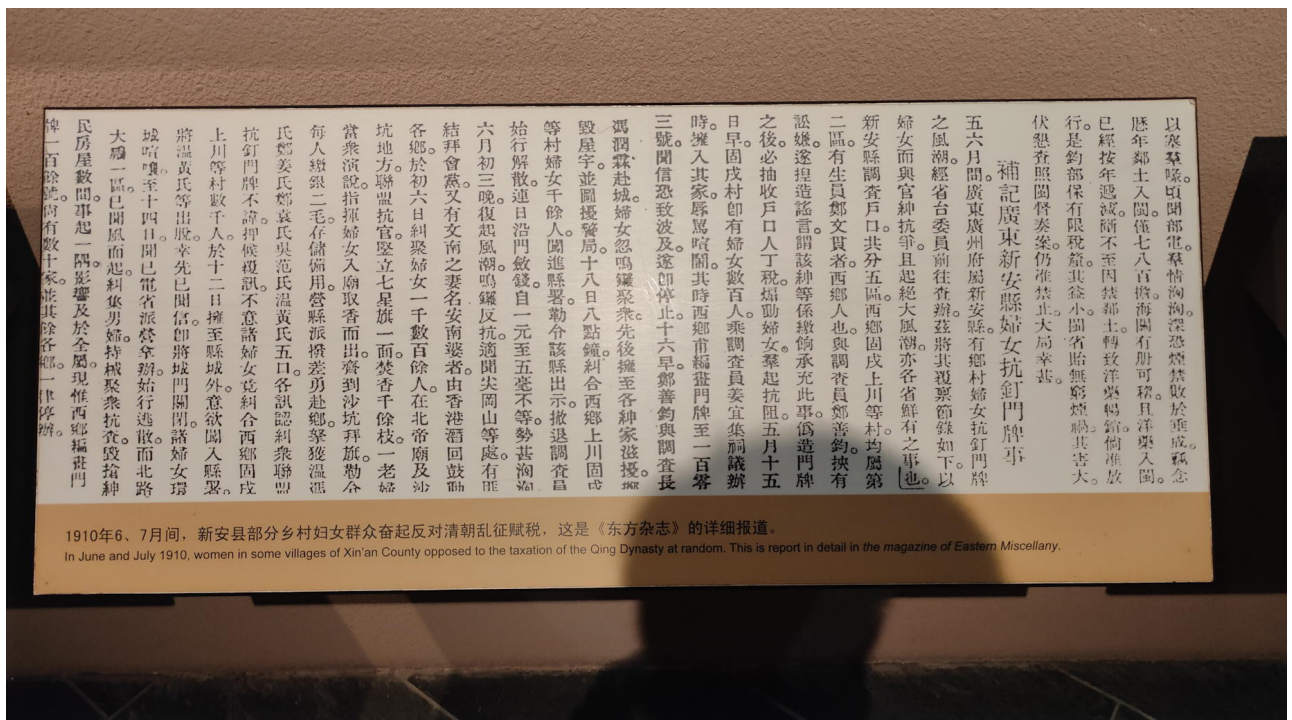 以塞羣喙頃聞部電羣情洶洶深恐煙禁敗於垂成竊念
歷年鄰土入閩僅七八百擔海關有册可稽且洋藥入閩。
已經按年遞減斷不至因禁鄰土轉致洋藥暢銷倘准放
行是鈞部保有限稅釐其益小閩省貽無窮煙禍其害大。
伏懇查照閩督奏案仍准禁止大局幸甚。
補記廣東新安縣婦女抗釘門牌事
五六月間廣東廣州府屬新安縣有鄉村婦女抗釘門牌
之風潮。經省台委員前往查辦茲將其覆禀節錄如下。以
婦女而與官紳抗爭且起絕大風潮亦各省鮮有之事也。
新安縣調查戶口共分五區西鄉固戍上川等村均屬第
二區。有生員鄭文貫者西鄉人也與調查員鄭善鈞挾有
訟嫌遂揑造謠言謂該紳等係繳餉承充此事。僞造門牌
之後必抽收戶口人丁稅煽動婦女羣起抗阻。五月十五
日早。固戍村卽有婦女數百人乘調査員姜宜集祠議辦
時。擁入其家辱罵喧鬧。其時西鄉甫編釐門牌至一百零
三號。聞信恐致波及。遂卽停止十六早鄭善鈞與調查長
馮潤霖赴城婦女忽鳴鑼聚衆先後擁至各紳家滋擾。
毀屋宇。並圖擾警局。十八日八點鐘糾合西鄉上川固戍
等村婦女千餘人。闖進縣署。勒令該縣出示。撤退調查員
始行解散。連日沿門斂錢自一元至五毫不等。勢甚洶洶
六月初三晚。復起風潮。鳴鑼反抗。適聞尖岡山等處有匪
結拜會黨又有文南之妻名安南婆者。由香港潛回鼓動
各鄉。於初六日糾聚婦女一千數百餘人。在北帝廟及沙
坑地方。聯盟抗官竪立七星旗一面。焚香千餘枝。一老婦
當衆演說指揮婦女入廟取香而出。齊到沙坑拜旗勒令
每人繳銀二毛。存儲備用。營縣派撥差勇赴鄉拏獲溫馮
氏鄭姜氏鄭袁氏吳范氏溫黃氏五口。各訊認糾衆聯盟
抗釘門牌不諱押候覆訊。不意諸婦女竟糾合西鄉固戍
上川等村數千人。於十二日擁至縣城外。意欲闖入縣署。
將溫黃氏等出脫。幸先已聞信卽將城門關閉。諸婦女環
城喧嚷。至十四日聞已電省派營拿辦。始行逃散。而北路
大鵬一區。已聞風而起。糾集男婦。持械聚衆抗查。毀搶紳
民房屋數間。事起一隅影響及於全屬。現惟西鄉編釐門
牌一百餘號。尙有數十家。並其餘各鄉。一律停辦。
1910年6、7月间，新安县部分乡村妇女群众奋起反对清朝乱征赋税，这是《东方杂志》的详细报道。
In June and July 1910, women in some villages of Xin'an County opposed to the taxation of the Qing Dynasty at random. This is report in detail in the magazine of Eastern Miscellany.